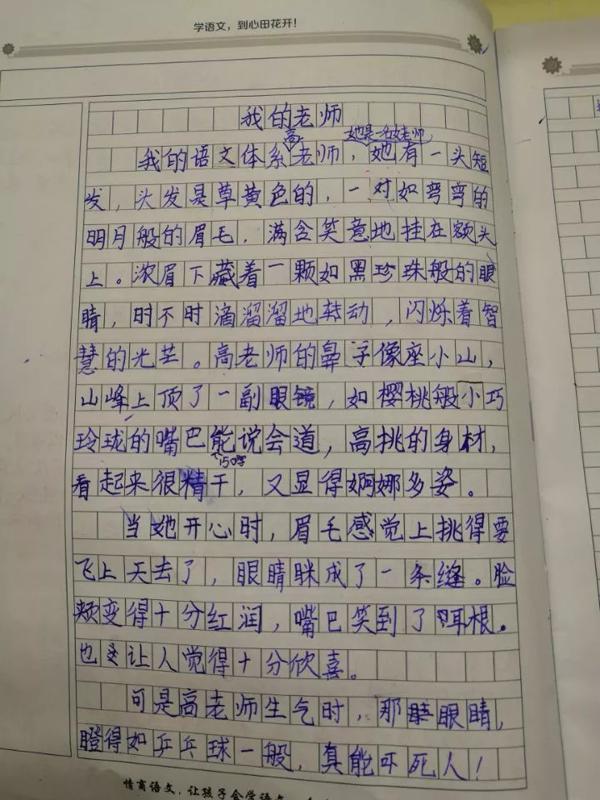 学语文，到心田花开！
我的老师
她是一名女老师
高
我的语文体系老师，她有一头短
发，头发是尊黄色的，一对如弯弯的
明月般的眉毛，满含笑意地挂在额头
上。浓眉下藏着一颗如黑珍珠般的眼
睛，时不时滴溜溜地转动，闪烁着智
慧的光芒。高老师的鼻子像座小山，
山峰上顶了一副眼镜，如樱桃般小巧
玲珑的嘴巴能说会道，高挑的身材，
看起来很精干，又显得婀娜多姿。
当她开心时，眉毛感觉上挑得要
飞上天去了，眼睛眯成了一条缝。脸
颊变得十分红润，嘴巴笑到了耳根。
也让人觉得十分欣喜。
可是高老师生气时，那眼睛，
瞪得如乒乓球一般，真能吓死人！
情商语文，让孩子会学语文